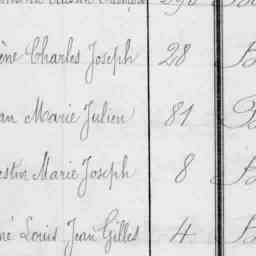 ène Charles Joseph 28 B
an Marie Julien 81 B
estin Marie Joseph 8 B
né Louis Jean Gilles 4 B